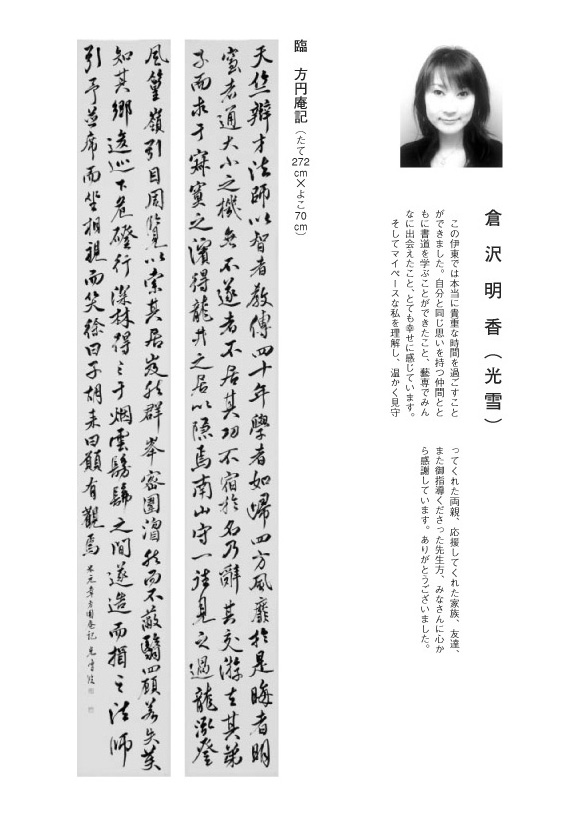 倉沢明香（光雪）
この伊東では本当に貴重な時間を過ごすこと
ができました。自分と同じ思いを持つ仲間とと
もに書道を学ぶことができたこと、藝専でみん
なに出会えたこと、とても幸せに感じています。
そしてマイペースな私を理解し、温かく見守
ってくれた両親、応援してくれた家族、友達、
また御指導くださった先生方、みなさんに心か
ら感謝しています。ありがとうございました。
臨　方円庵記（たて272cm×よこ70cm）
天竺辯才法師以智者教傳四十年學者如歸四方風靡於是晦者明
窒者通大小之機無不遂者不居其功不宿於名乃辭其交游去其弟
子而求于寂寞之濱得龍井之居以隱焉南山守一往見之過龍泓登
風篁嶺引目周覽以索其居岌然群峯密圍溜然而不蔽翳四顧若失莫
知其鄉逡巡下危磴行深林得之于烟雲髣髴之間遂造而揖之法師
引予並席而坐相視而笑徐曰子胡來曰願有觀焉
米元章方圓庵記　光雪臨